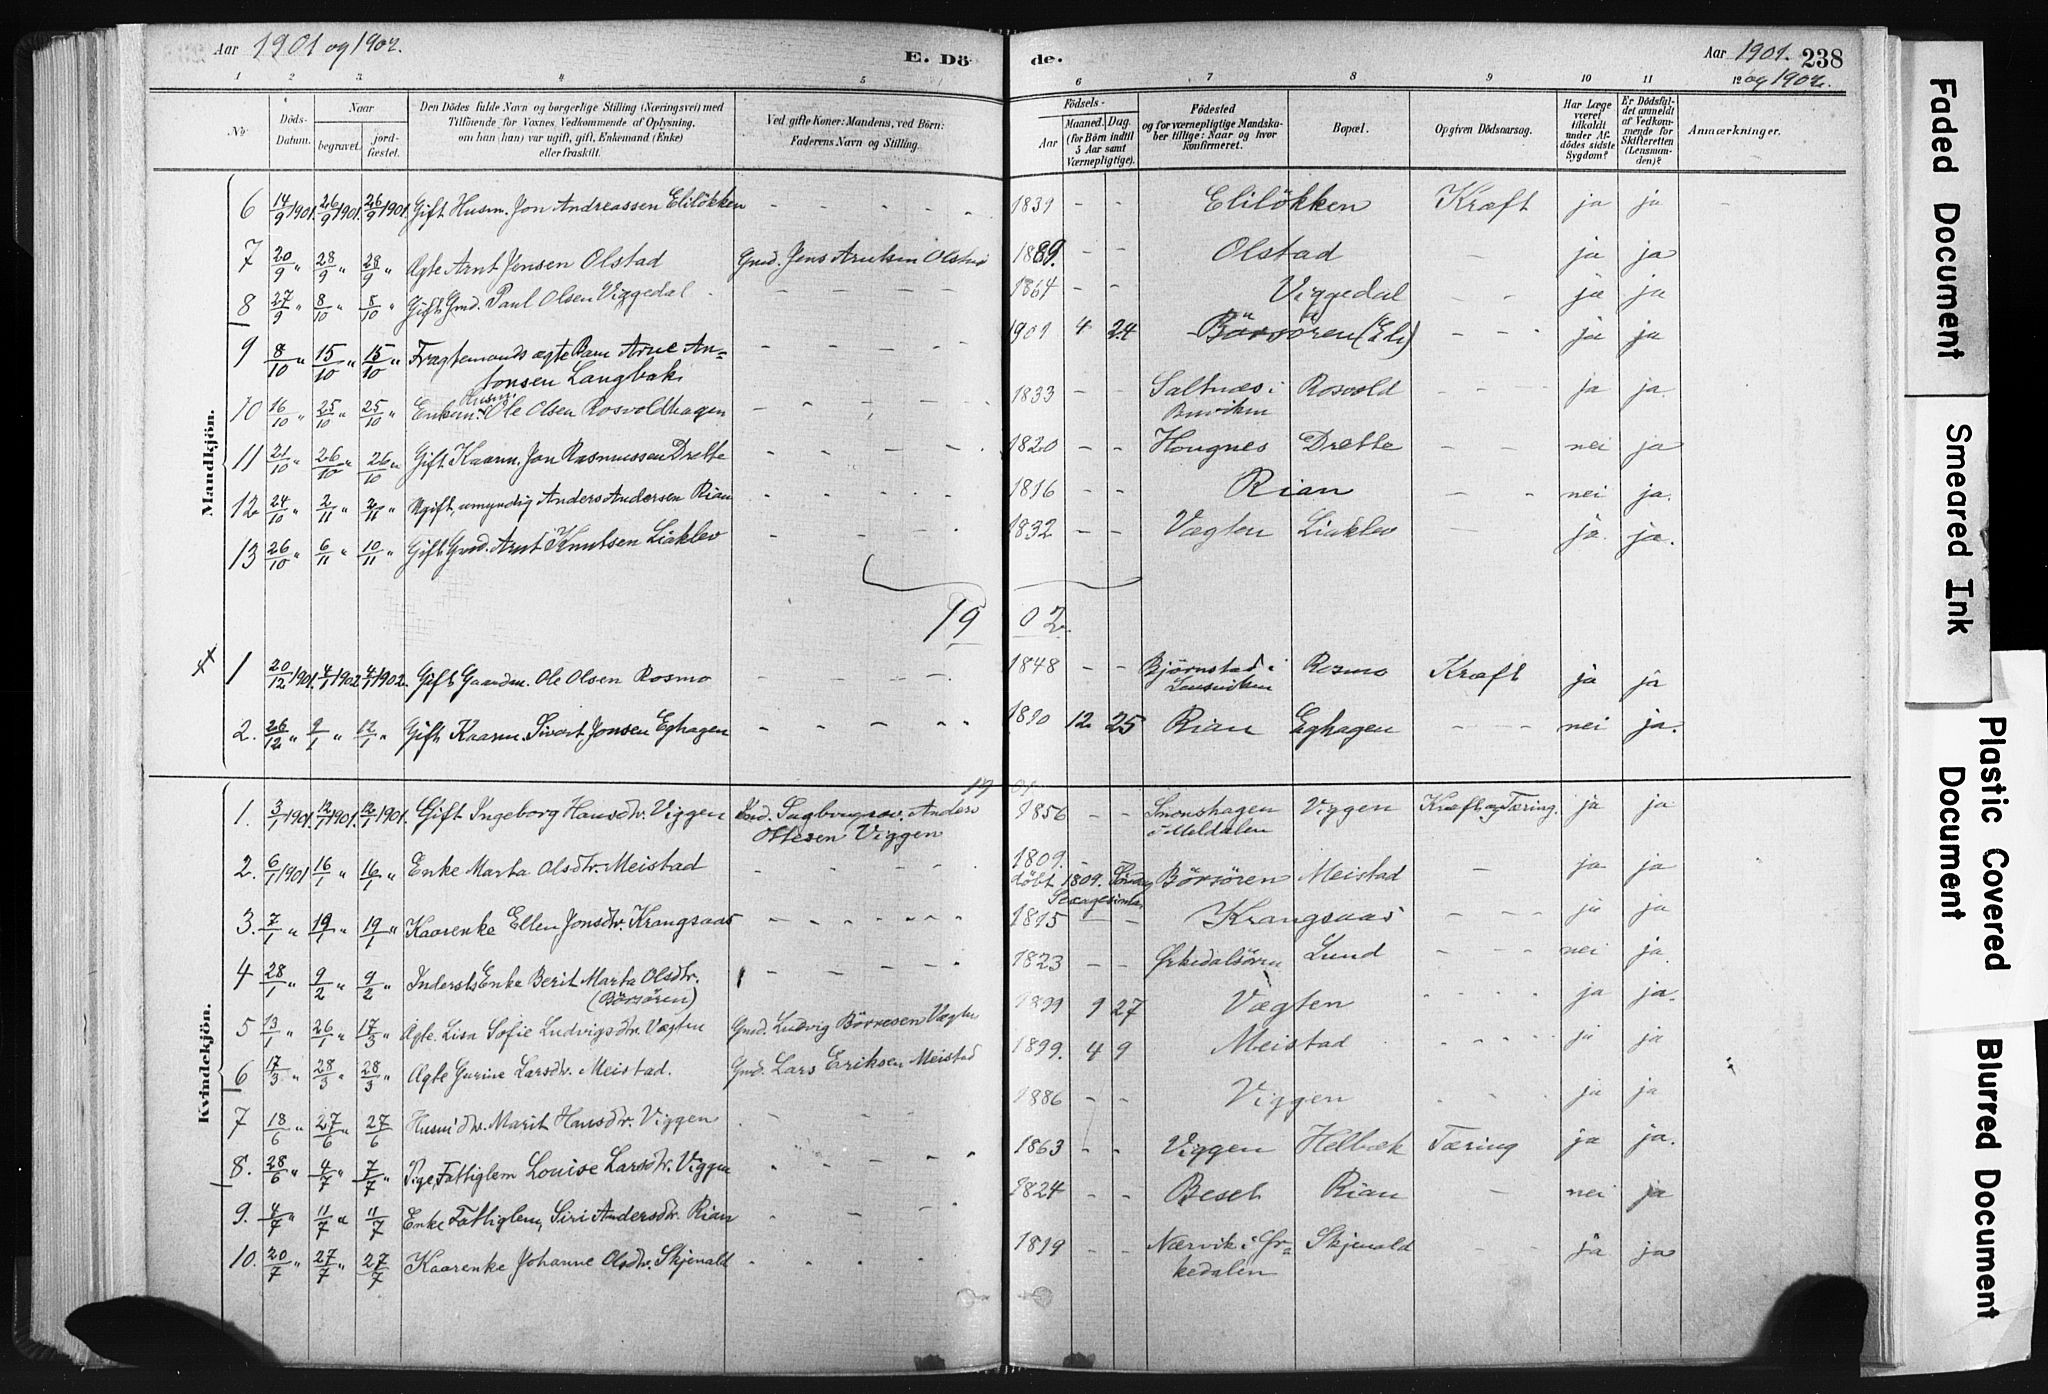 Aar 1901 og 1902.
E. Dö
de.
Aar 1901. 238
og 1902.
1 2 3 4 5 6 7 8 9 10 11 12
No
Döds-Datum.
Naar
begravet.
jord-fæstet.
Den Dödes fulde Navn og borgerlige Stilling (Næringsvei) med
Tilföiende, for Voxnes Vedkommende af Oplysning,
om han (hun) var ugift, gift, Enkemand (Enke)
eller fraskilt.
Ved gifte Koner: Mandens, ved Börn:
Faderens Navn og Stilling.
Födsels-
Aar
Maaned. Dag.
(for Börn indtil
5 Aar samt
Værnepligtige).
Födested
og for værnepligtige Mandska-
ber tillige: Naar og hvor
konfirmeret.
Bopæl.
Opgiven Dödsaarsag.
Har Læge
været
tilkaldt
under Af-
dödes sidste
Sygdom?
Er Dödsfal-
det anmeldt
af Vedkom-
mende for
Skifteretten
(Lensman-
den)?
Anmærkninger.
Mandkjön.
6 14/9 1901. 26/9 1901. 26/9 1901. Gift Husm. Jon Andreassen Elilökken - - - - - 1831 - - Elilökken Kræft ja ja -
7 20/9 " 28/9 " 28/9 " Ægte Arnt Jensen Olstad Gmd. Jens Arntsen Olstad 1889. - - Olstad - ja ja
8 27/9 " 8/10 " 8/10 " Gift Gmd. Paul Olsen Viggedal - - - - - 1864 - - Viggedal - - ja ja
9 8/10 " 15/10 " 15/10 " Fragtemands ægte Barn Arne An-
tonsen Langbak - - - - - 1901 4 24 Börsören (Eli) - - - ja ja
10 16/10 " 25/10 " 25/10 " Enkem. Husm. Ole Olsen Rosvoldhagen - - - - - 1833 - - Saltnæs i
Buviken Rosvold - - - ja ja.
11 21/10 " 26/10 " 26/10 " Gift Kaarm. Jon Rasmussen Drette - - - - - 1820 - - Hougnes Drette - - nei ja
12 24/10 " 2/11 " 2/11 " Ugift, umyndig Anders Andersen Rian - - - - 1816 - - Rian - - nei ja.
13 26/10 " 6/11 " 10/11 " Gift Gmd. Arnt Knutsen Liaklev - - - - 1832 - - Vægten Liaklev ja ja.
19 02.
1 20/12 1901. 4/1 1902 4/1 1902. Gift Gaardm. Ole Olsen Rosmo - - - - - 1848 - - Björnstad i
Lensviken Rosmo Kræft ja ja
2. 26/12 " 9/1 " 12/1 " Gift Kaarm. Sivert Jonsen Eghagen - - - - - 12 25 Rian Eghagen - - nei ja.
Kvindekjön.
19 01.
1. 3/1 1901. 12/1 1901. 12/1 1901. Gift Ingeborg Hansdtr. Viggen Anders
Ottesen Viggen 1856 - -
i Meldalen Viggen Kræft og Tæring. ja ja
2. 6/1 1901 16/1 " 16/1 " Enke Marta Olsdtr. Meistad - - - - 1809.
döbt 1809. Söndag
Börsören Meistad - ja ja
3. 7/1 " 19/1 " 19/1 " Kaarenke Ellen Jonsdtr. Krangsaas - - - - - - 1815 - - Krangsaas - - - ja ja
4 28/1 " 9/2 " 9/2 " Inderste Enke Berit Marta Olsdtr.
(Börsören) - - - - - 1823 - - Ørkedalsören Lund - - - nei ja.
5 13/1 " 26/1 " 17/3 " Ægte Lisa Sofie Ludvigsdtr. Vægten Gmd. Ludvig Börresen Vægten 1899 9 27 Vægten - - - - ja ja.
6 17/3 " 28/3 " 28/3 " Ægte Gurine Larsdtr. Meistad. Gmd. Lars Eriksen Meistad 1899. 4 9 Meistad - - - - ja ja
7 18/6 " 27/6 " 27/6 " Husm. dtr. Marit Hansdtr. Viggen - - - 1886 - - Viggen - - - ja ja
8. 28/6 " 4/7 " 7/7 " Pige, Fattiglem Louise Larsdtr. Viggen - - - - - 1863 - - Viggen Helbæk Tæring ja ja.
9. 4/7 " 11/7 " 11/7 Enke Fattiglem, Siri Andersdtr. Rian - - - 1824 - - Besel Rian - nei ja
10. 20/7 " 27/7 " 27/7 " Kaarenke Johanne Olsdtr. Skjenald - - - - 1819 - - Nærvik i Ør-
kedalen Skjenald - - ja ja
Faded Document
Smeared Ink
Plastic Covered
Document
Blurred Document